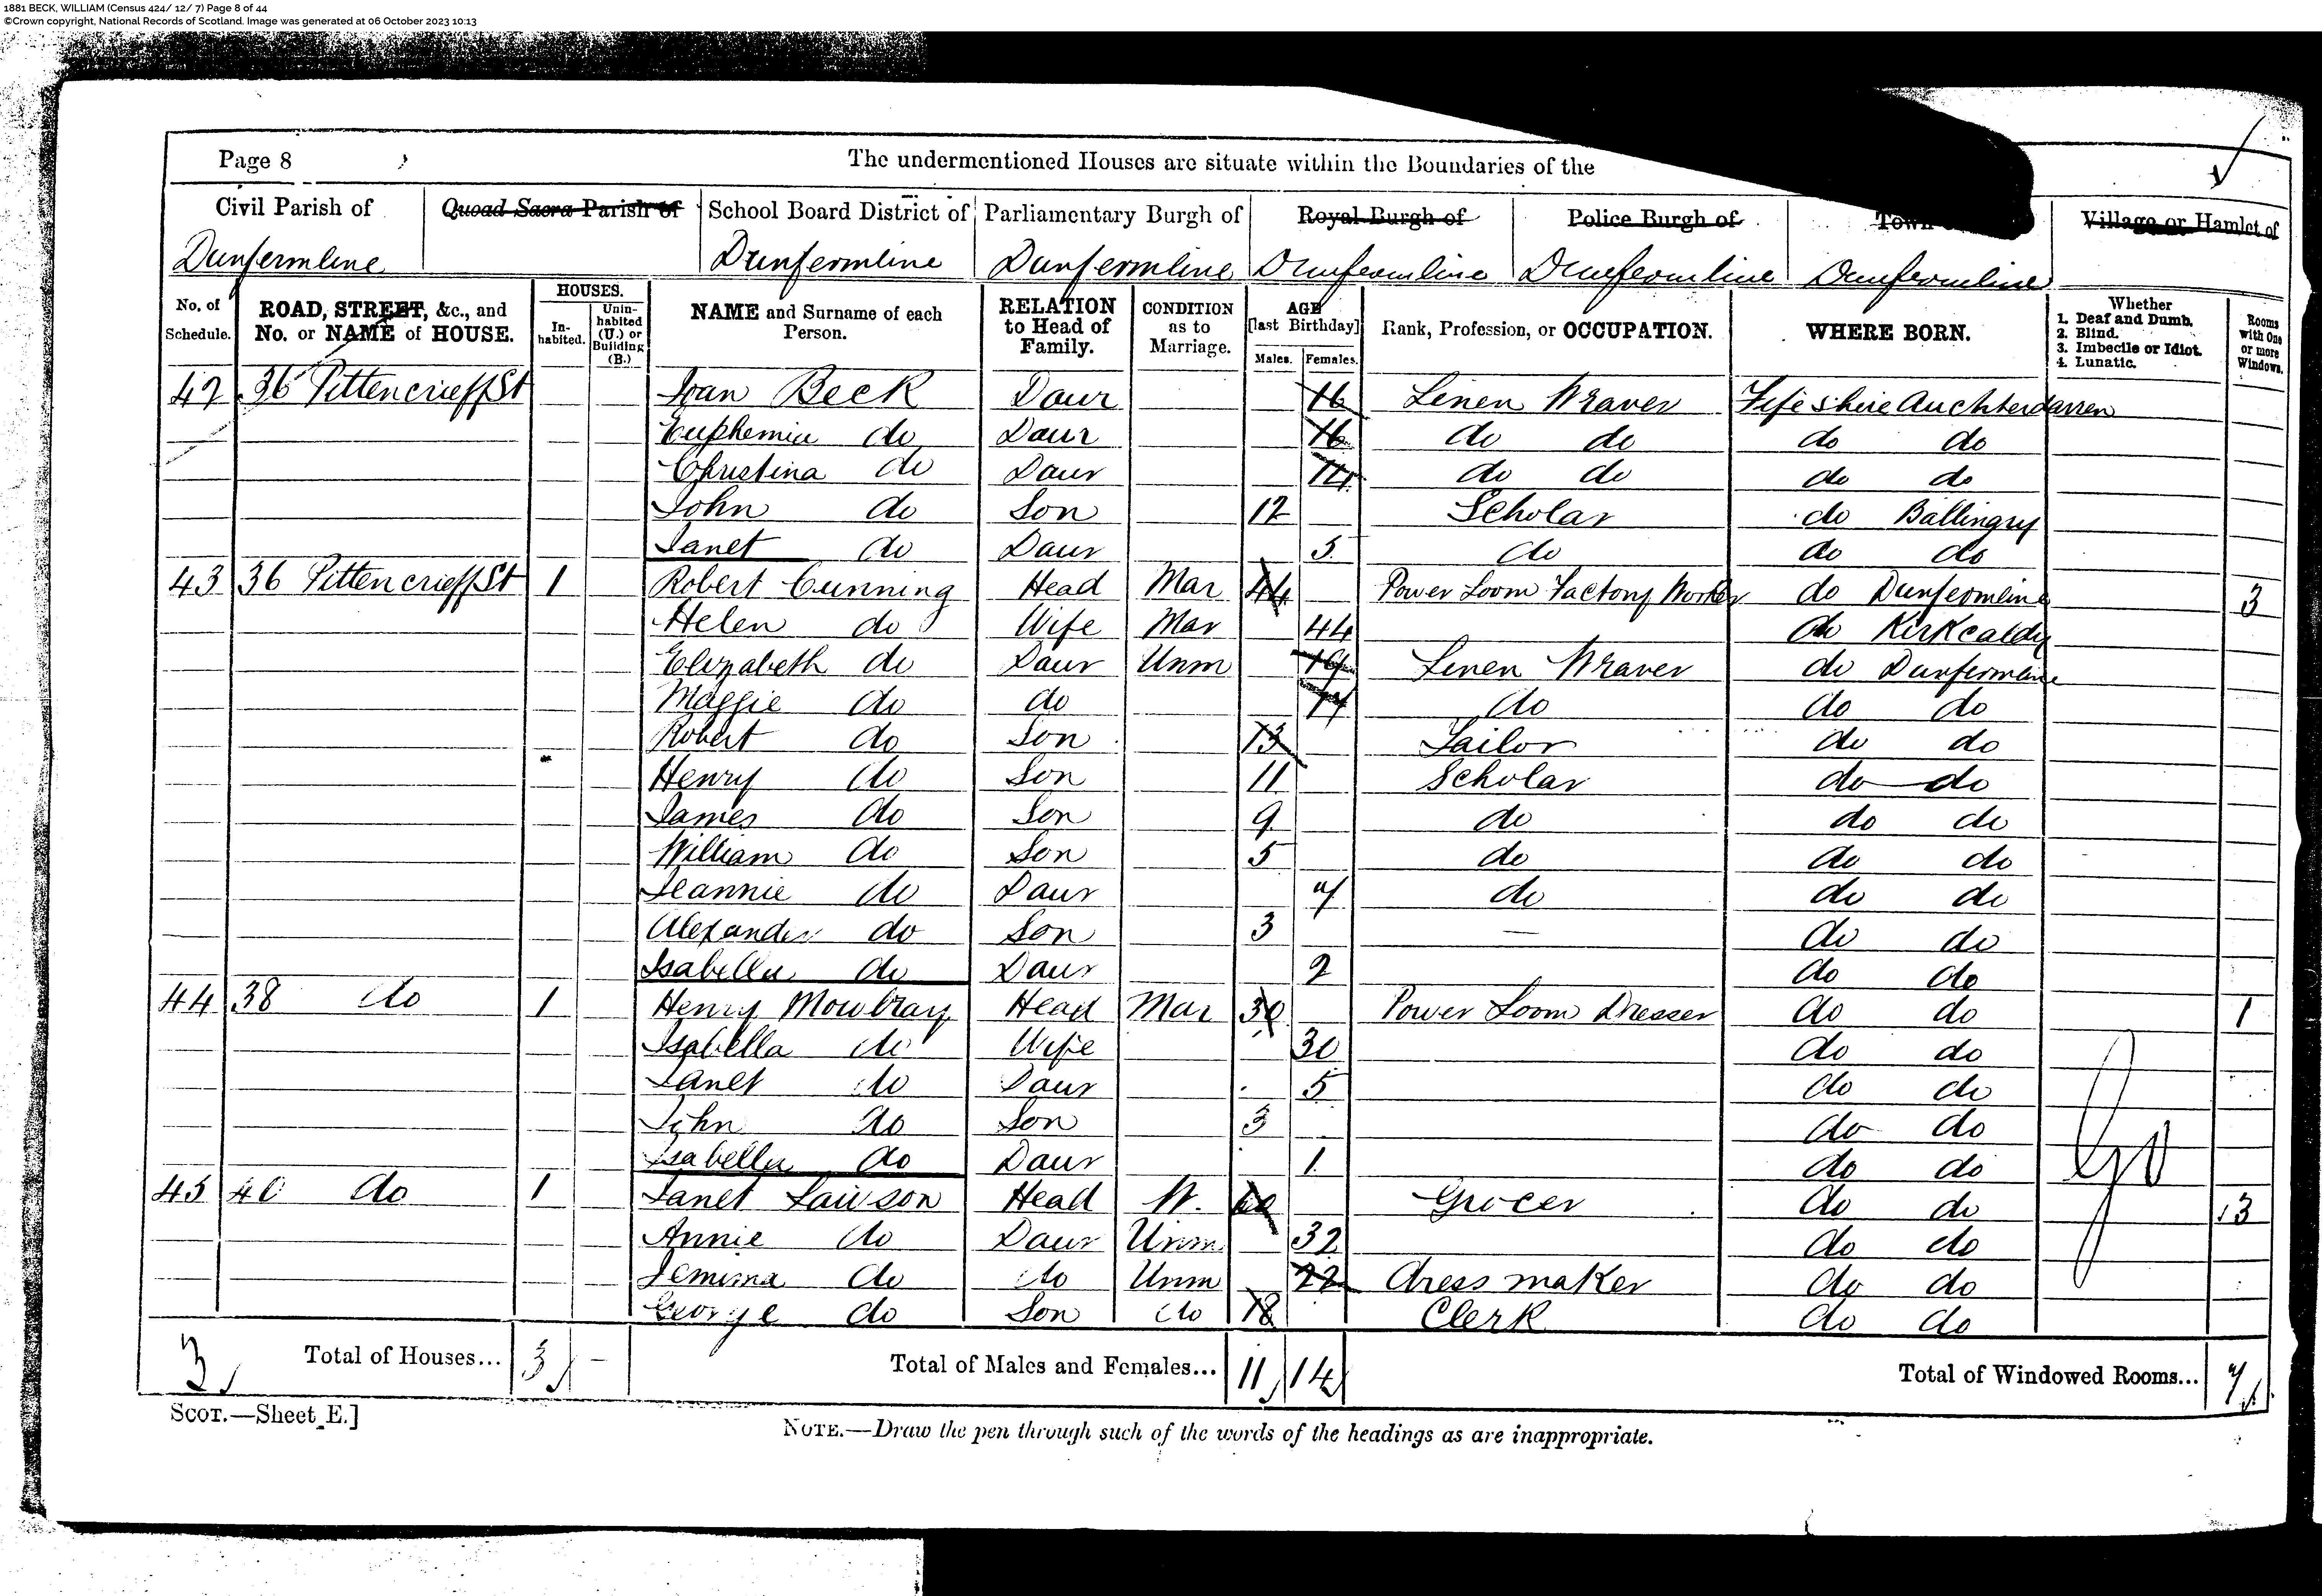 1881 BECK, WILLIAM (Census 424/ 12/ 7) Page 8 of 44
©Crown copyright, National Records of Scotland. Image was generated at 06 October 2023 10:13
Page 8 The undermentioned Houses are situate within the Boundaries of the
Civil Parish of Quoad Sacra Parish of School Board District of Parliamentary Burgh of Royal Burgh of Police Burgh of Town Village or Hamlet of
Dunfermline Dunfermline Dunfermline Dunfermline Dunfermline Dunfermline
No. of Schedule. ROAD, STREET, &c., and No. or NAME of HOUSE. HOUSES. In-habited. Unin-habited (U.) or Building (B.) NAME and Surname of each Person. RELATION to Head of Family. CONDITION as to Marriage. AGE [last Birthday] Males. Females. Rank, Profession, or OCCUPATION. WHERE BORN. Whether 1. Deaf and Dumb. 2. Blind. 3. Imbecile or Idiot. 4. Lunatic. Rooms with One or more Windows.
42 36 Pittencrieff St Joan Beck Daur 16 Linen Weaver Fifeshire Auchterdarren
Euphemia do Daur 16 do do do do
Christina do Daur 14 do do do do
John do Son 12 Scholar do Ballingry
Janet do Daur 5 do do do
43 36 Pittencrieff St 1 Robert Cunning Head Mar 44 Power Loom Factory Worker do Dunfermline 3
Helen do Wife Mar 44 do Kirkcaldy
Elizabeth do Daur Unm 19 Linen Weaver do Dunfermline
Maggie do do 17 do do do
Robert do Son 13 Tailor do do
Henry do Son 11 Scholar do do
James do Son 9 do do do
William do Son 5 do do do
Jeannie do Daur 7 do do do
Alexander do Son 3 — do do
Isabella do Daur 2 do do
44 38 do 1 Henry Mowbray Head Mar 30 Power Loom Dresser do do 1
Isabella do Wife 30 do do
Janet do Daur 5 do do
John do Son 3 do do
Isabella do Daur 1 do do
45 40 do 1 Janet Lawson Head W. 60 Grocer do do 3
Annie do Daur Unm 32 do do
Jemima do do Unm 22 dress maker do do
George do Son do 18 Clerk do do
3 Total of Houses... 3 - Total of Males and Females... 11 14 Total of Windowed Rooms... 7
SCOT.—Sheet E.]
NOTE.—Draw the pen through such of the words of the headings as are inappropriate.